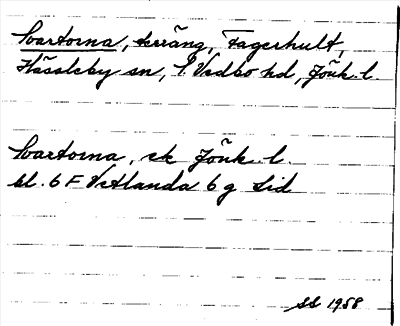 Svartorna, terräng, Fagerhult,
Hässleby sn, S. Vedbo hd, Jönk. l.
Svartorna, ek Jönk. l.
bl. 6 F Vetlanda 6 g
SS 1958